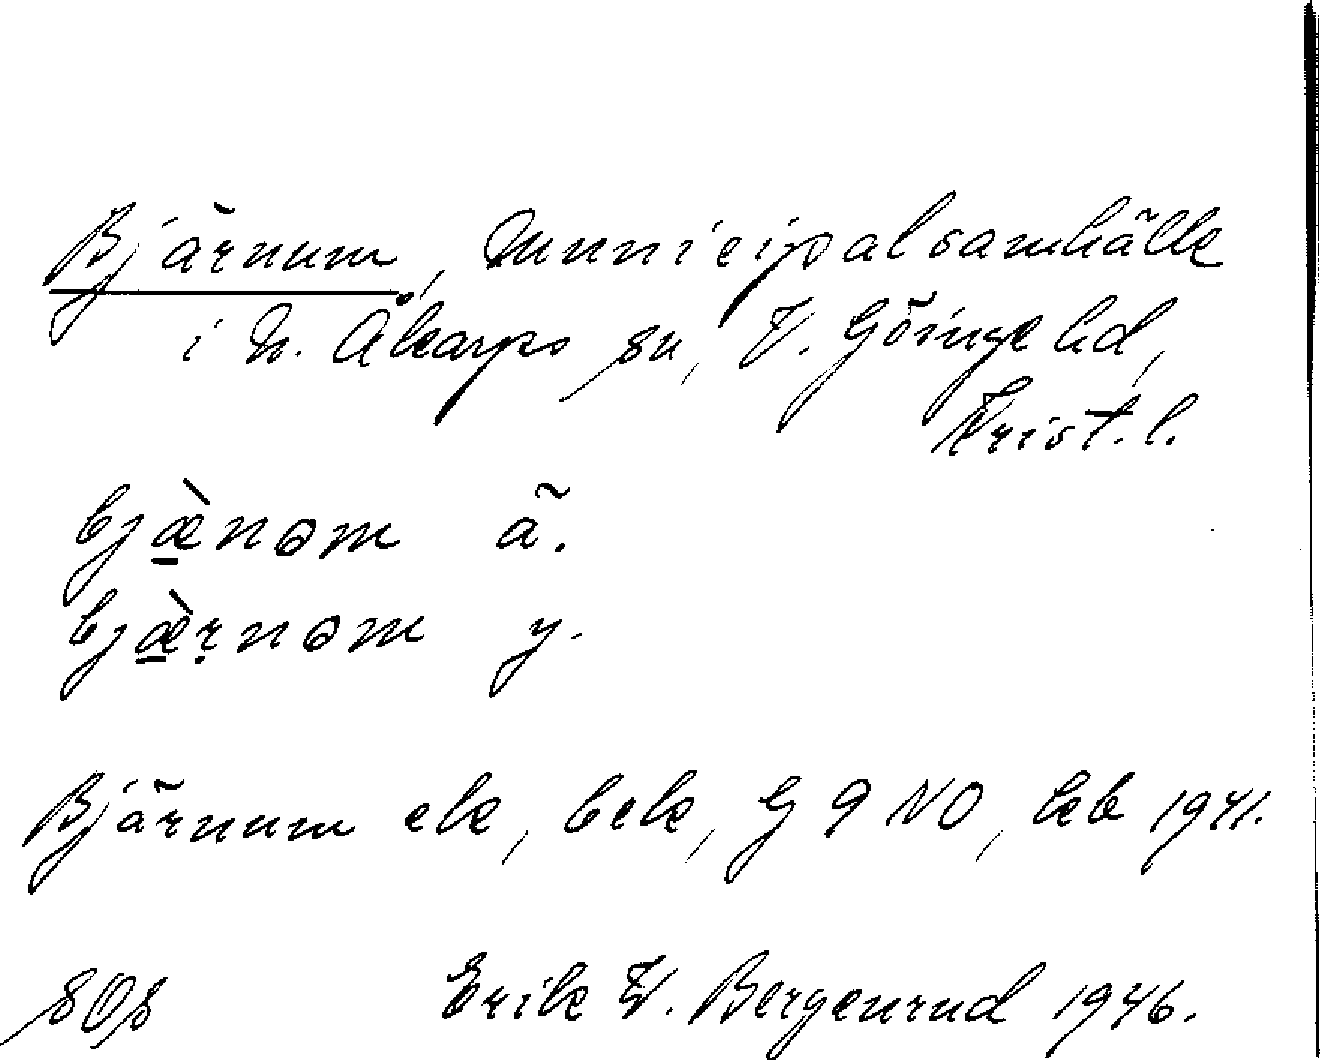 Bjärnum, Municipalsamhälle
i N. Åkarps sn, V. Göinge hd,
Krist. l.
bjæ̠̀nɷm ä.
bjæ̠̀ṛnɷm y.
Bjärnum ek, bek, G 9 NO, kb 1941.
SOS Erik W. Bergenrud 1946.